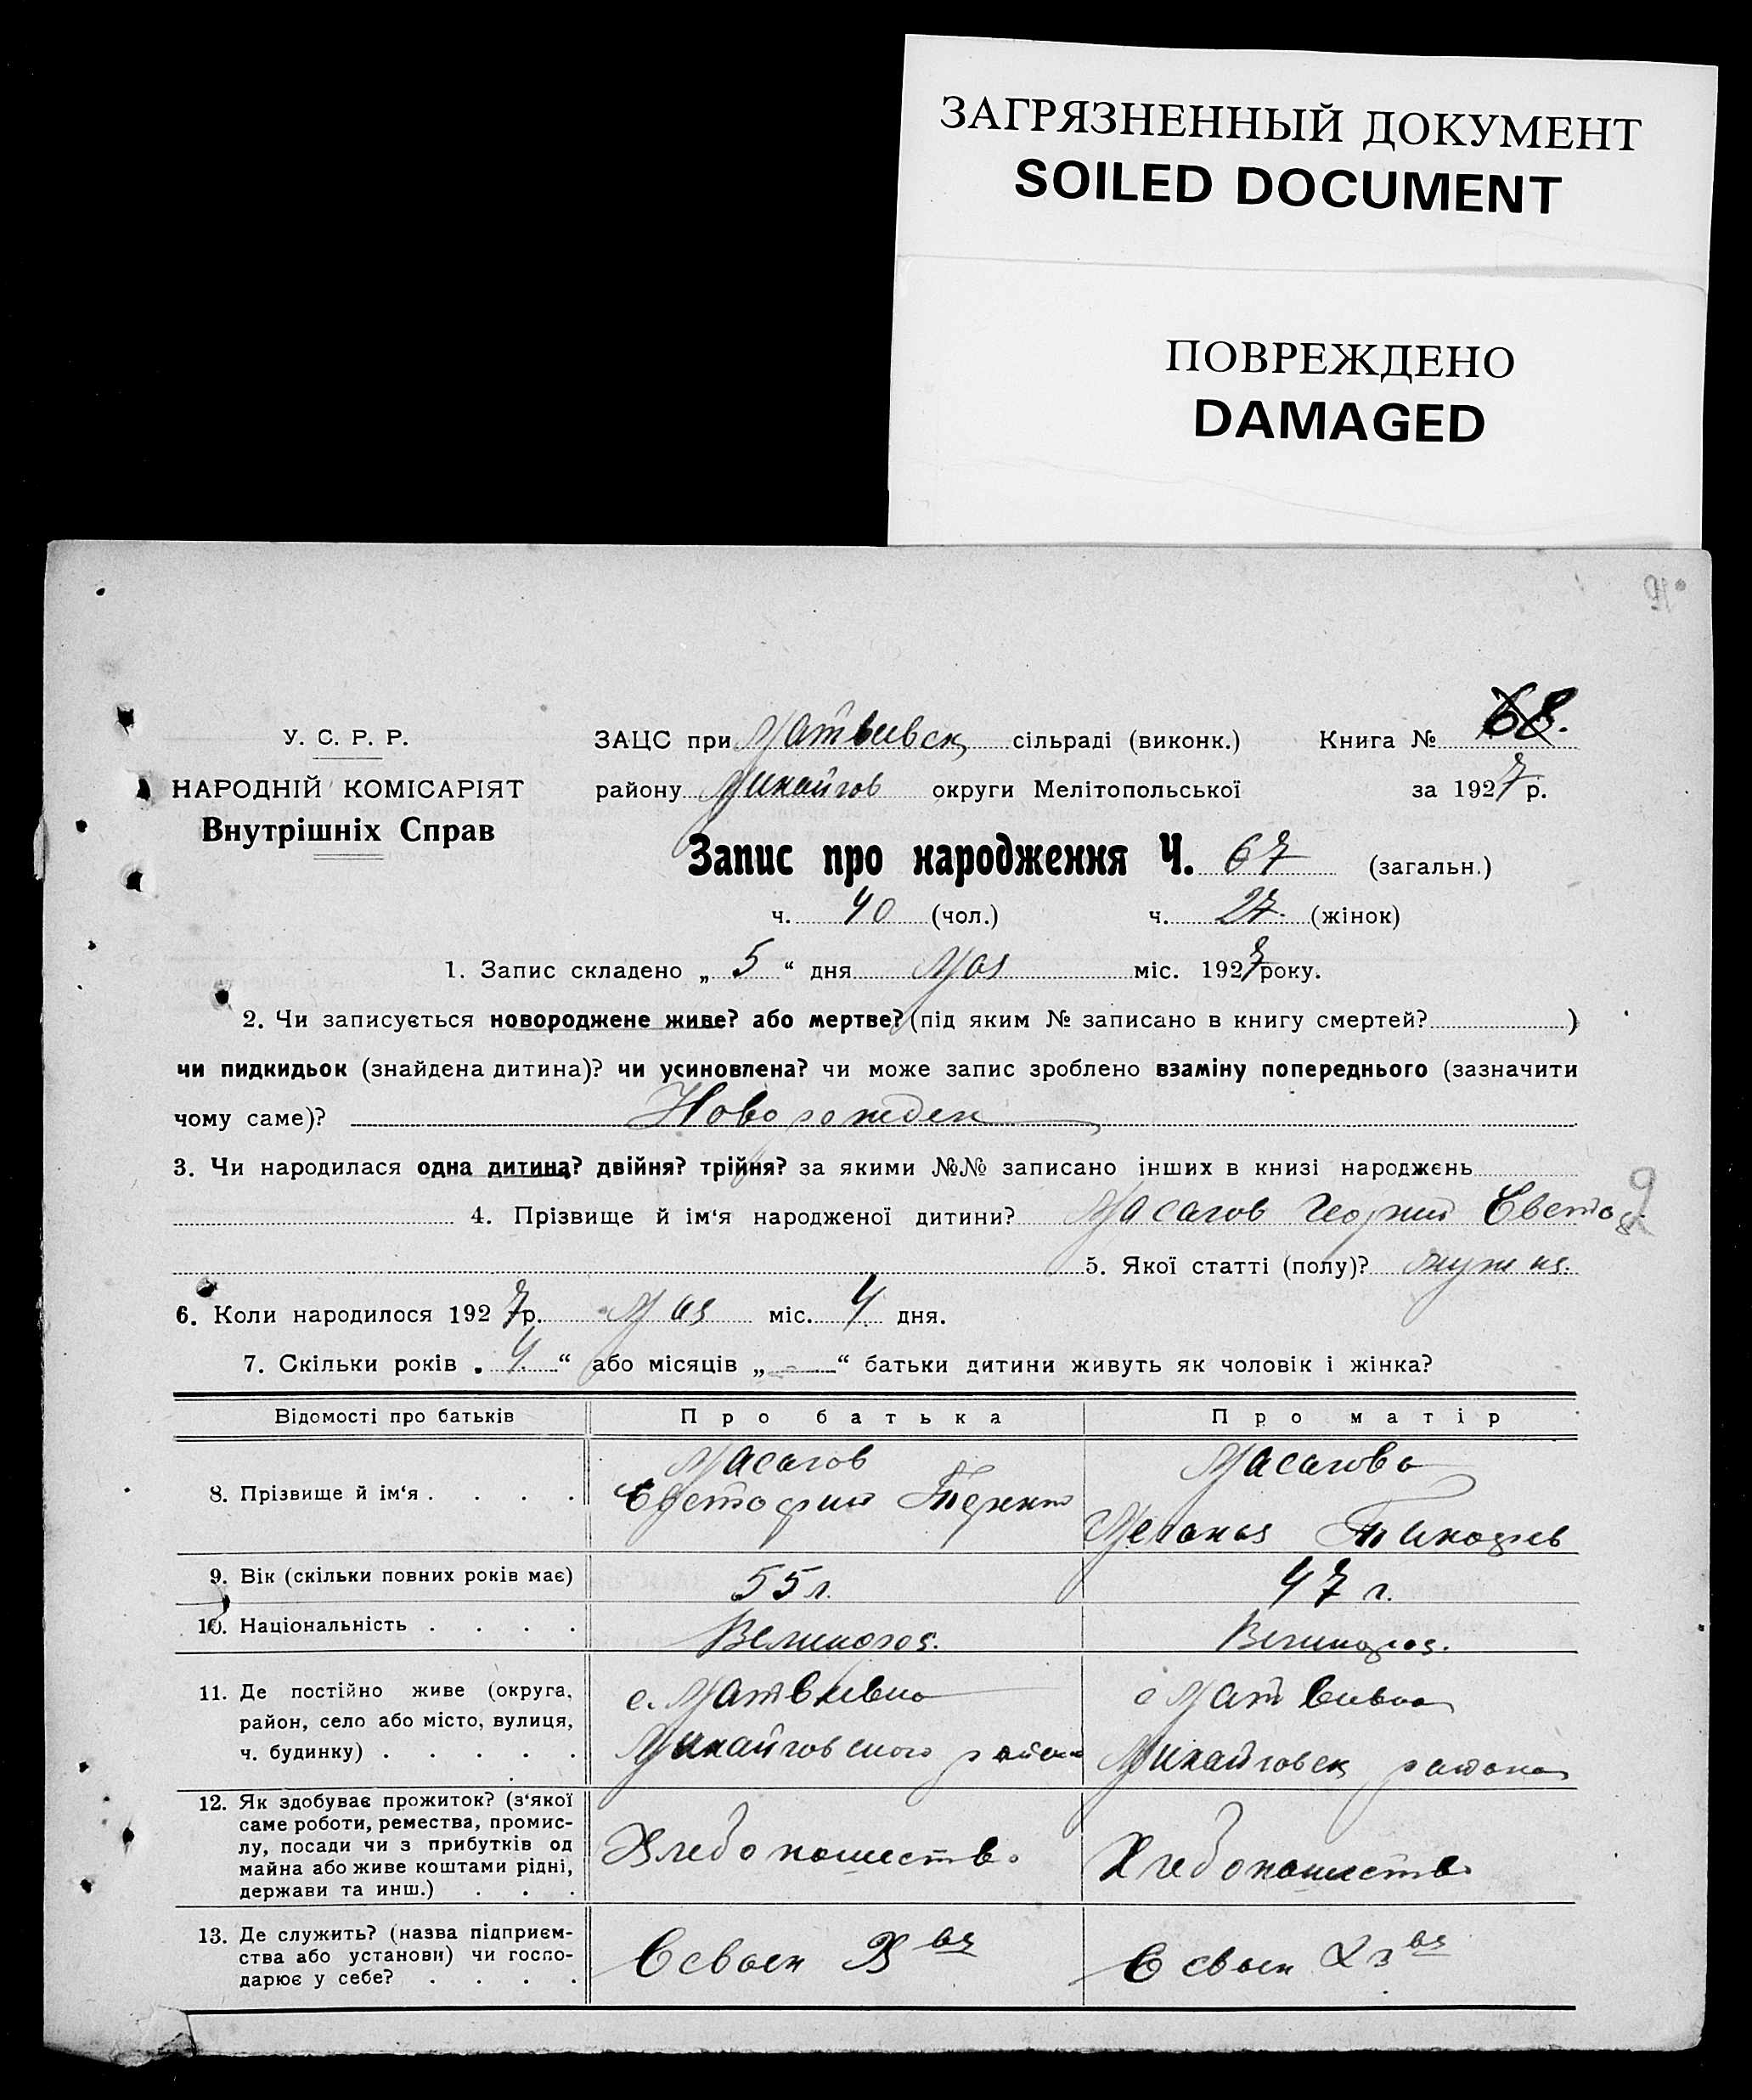 ЗАГРЯЗНЕННЫЙ ДОКУМЕНТ
SOILED DOCUMENT
ПОВРЕЖДЕНО
DAMAGED
У. С. Р. Р.
НАРОДНІЙ КОМІСАРІЯТ
Внутрішніх Справ
ЗАЦС при Матвиевск сільраді (виконк.) Книга № 68.
району Михайлов округи Мелітопольської за 1927 р.
Запис про народження Ч. 67 (загальн.)
ч. 40 (чол.) ч. 27. (жінок)
1. Запис складено „ 5 “ дня Мая міс. 1927 року.
2. Чи записується новороджене живе? або мертве? (під яким № записано в книгу смертей? )
чи пидкидьок (знайдена дитина)? чи усиновлена? чи може запис зроблено взаміну попереднього (зазначити
чому саме)? Новорожден
3. Чи народилася одна дитина? двійня? трійня? за якими №№ записано інших в книзі народжень
4. Прізвище й ім‘я народженої дитини? Масалов Георгий
5. Якої статті (полу)? мужск.
6. Коли народилося 1927 р. Мая міс. 4 дня.
7. Скільки років „ 4 “ або місяців „ - “ батьки дитини живуть як чоловік і жінка?
Відомості про батьків Про батька Про матір
8. Прізвище й ім‘я . . . .
Масалов
Масалова
9. Вік (скільки повних років має) 55 л. 47 л.
10. Національність . . . . Великорос. Великорос.
11. Де постійно живе (округа,
район, село або місто, вулиця,
ч. будинку) . . . . .
с. Матвиевка
Михайловского района
с Матвиевка
Михайловск района
12. Як здобуває прожиток? (з‘якої
саме роботи, ремества, промис-
лу, посади чи з прибутків од
майна або живе коштами рідні,
держави та инш.) . . .
Хлебопашество
Хлебопашество
13. Де служить? (назва підприєм-
ства або установи) чи госпо-
дарює у себе? . . . .
В своем Хз ве
В своем Хз ве